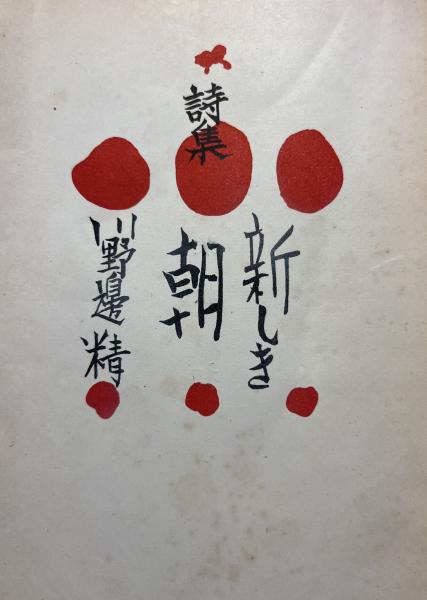 詩集
新しき
朝
川野邊精